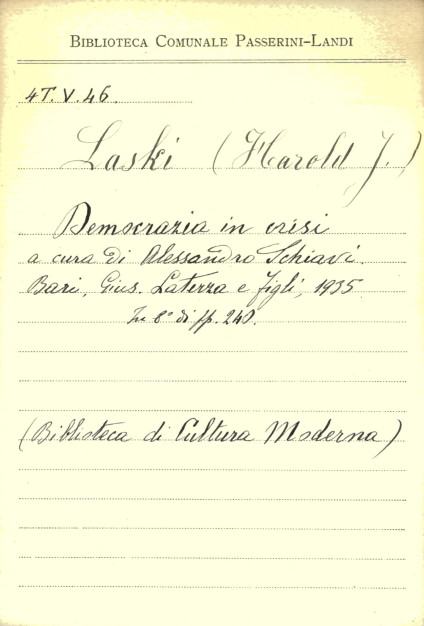 BIBLIOTECA COMUNALE PASSERINI-LANDI
4T. V. 46.
Laski (Harold J.)
Democrazia in crisi
a cura di Alessandro Schiavi.
Bari, Gius. Laterza e figli, 1935
In 8° di pp. 240.
(Biblioteca di Cultura Moderna)